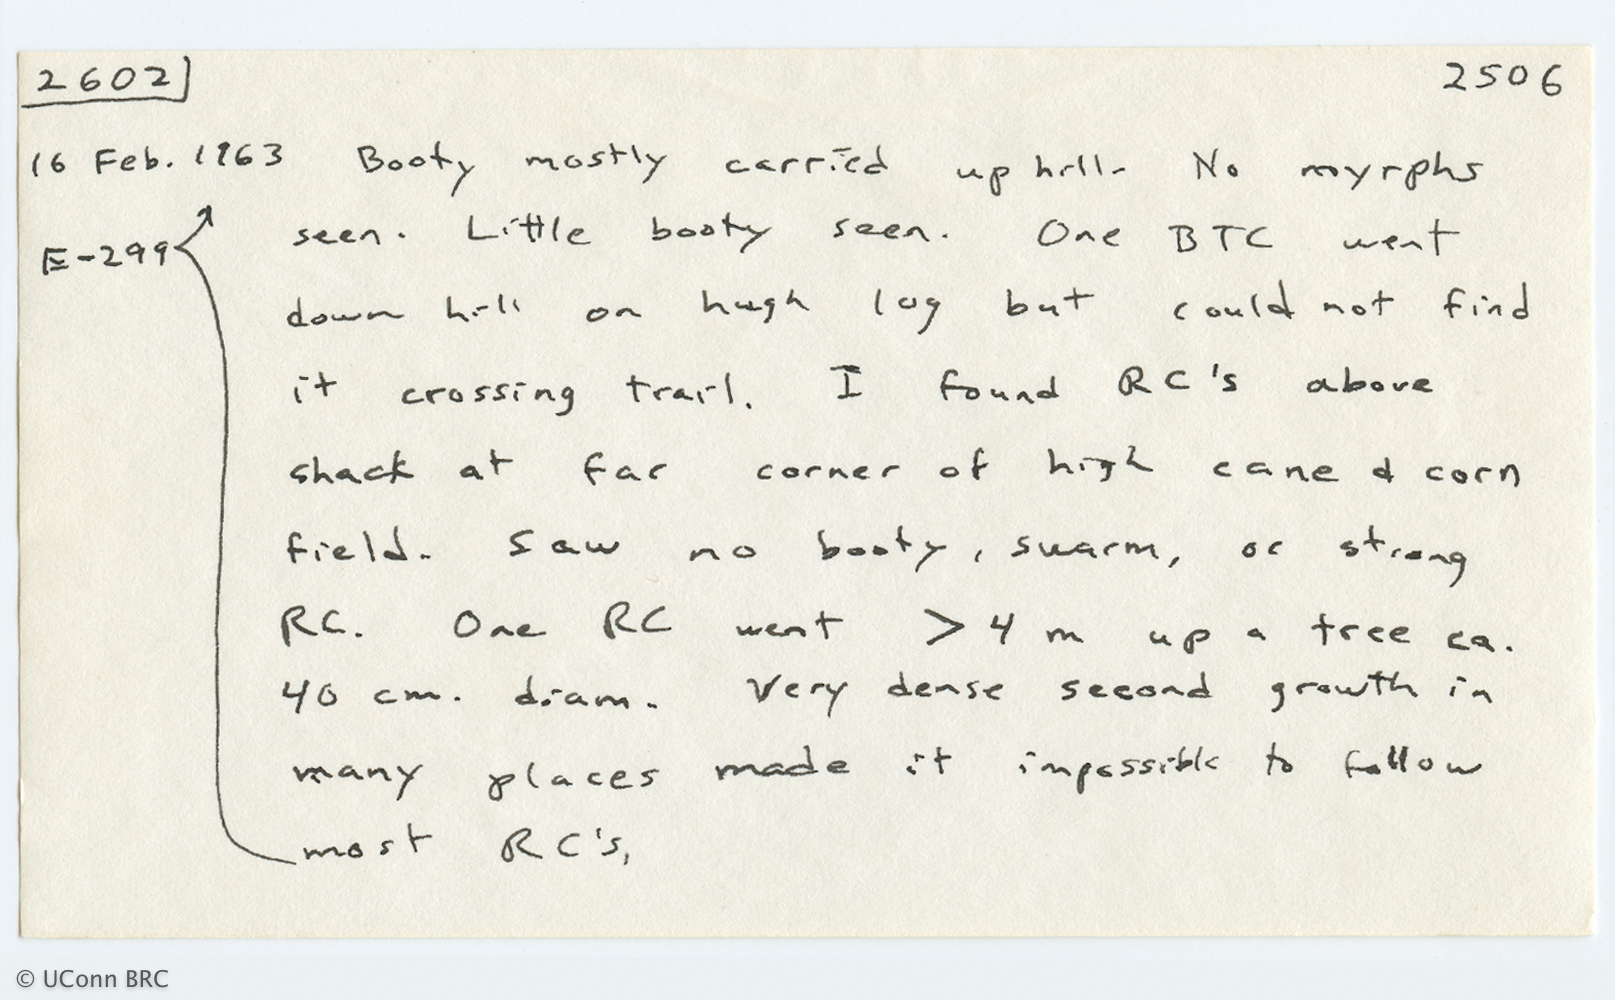 2602 2506
16 Feb. 1963 Booty mostly carried up hill. No myrphs
E-299 seen. Little booty seen. One BTC went
down hill on hugh log but could not find
it crossing trail. I found RC's above
shack at far corner of high cane & corn
field. Saw no booty, swarm, or strong
RC. One RC went > 4 m up a tree ca.
40 cm. diam. Very dense second growth in
many places made it impossible to follow
most RC's,
© UConn BRC